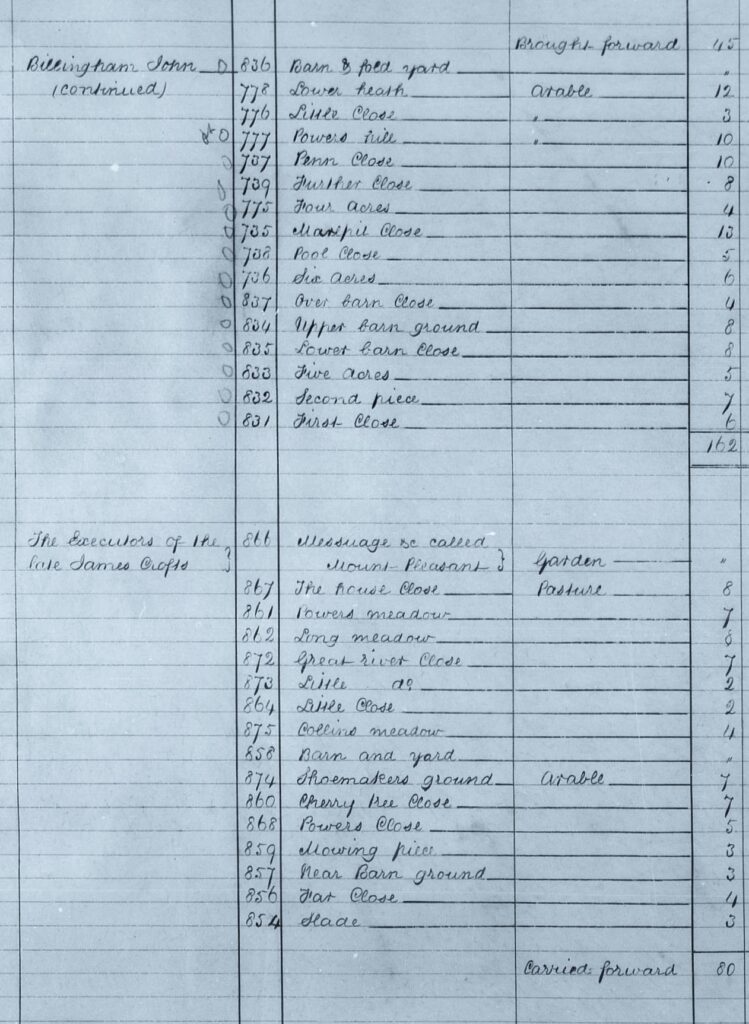 Brought forward 45
Billingham John 0 836 Barn & fold yard "
(continued) 778 Lower heath Arable 12
776 Little Close " 3
0 777 Powers hill " 10
0 737 Penn Close 10
0 739 Further Close 8
0 775 Four Acres 4
0 735 Marlpit Close 13
0 738 Pool Close 5
0 736 Six Acres 6
0 837 Over barn Close 4
0 834 Upper barn ground 8
0 835 Lower barn Close 8
0 833 Five Acres 5
0 832 Second piece 7
0 831 First Close 6
162
The Executors of the 866 Messuage &c called
late James Crofts } Mount Pleasant } Garden "
867 The house Close Pasture 8
861 Powers meadow 7
862 Long meadow 8
872 Great river Close 7
873 Little do 2
864 Little Close 2
875 Collins meadow 4
858 Barn and yard "
874 Shoemakers ground Arable 7
860 Cherry tree Close 7
868 Powers Close 5
859 Mowing piece 3
857 Near Barn ground 3
856 Far Close 4
854 Slade 3
Carried forward 80